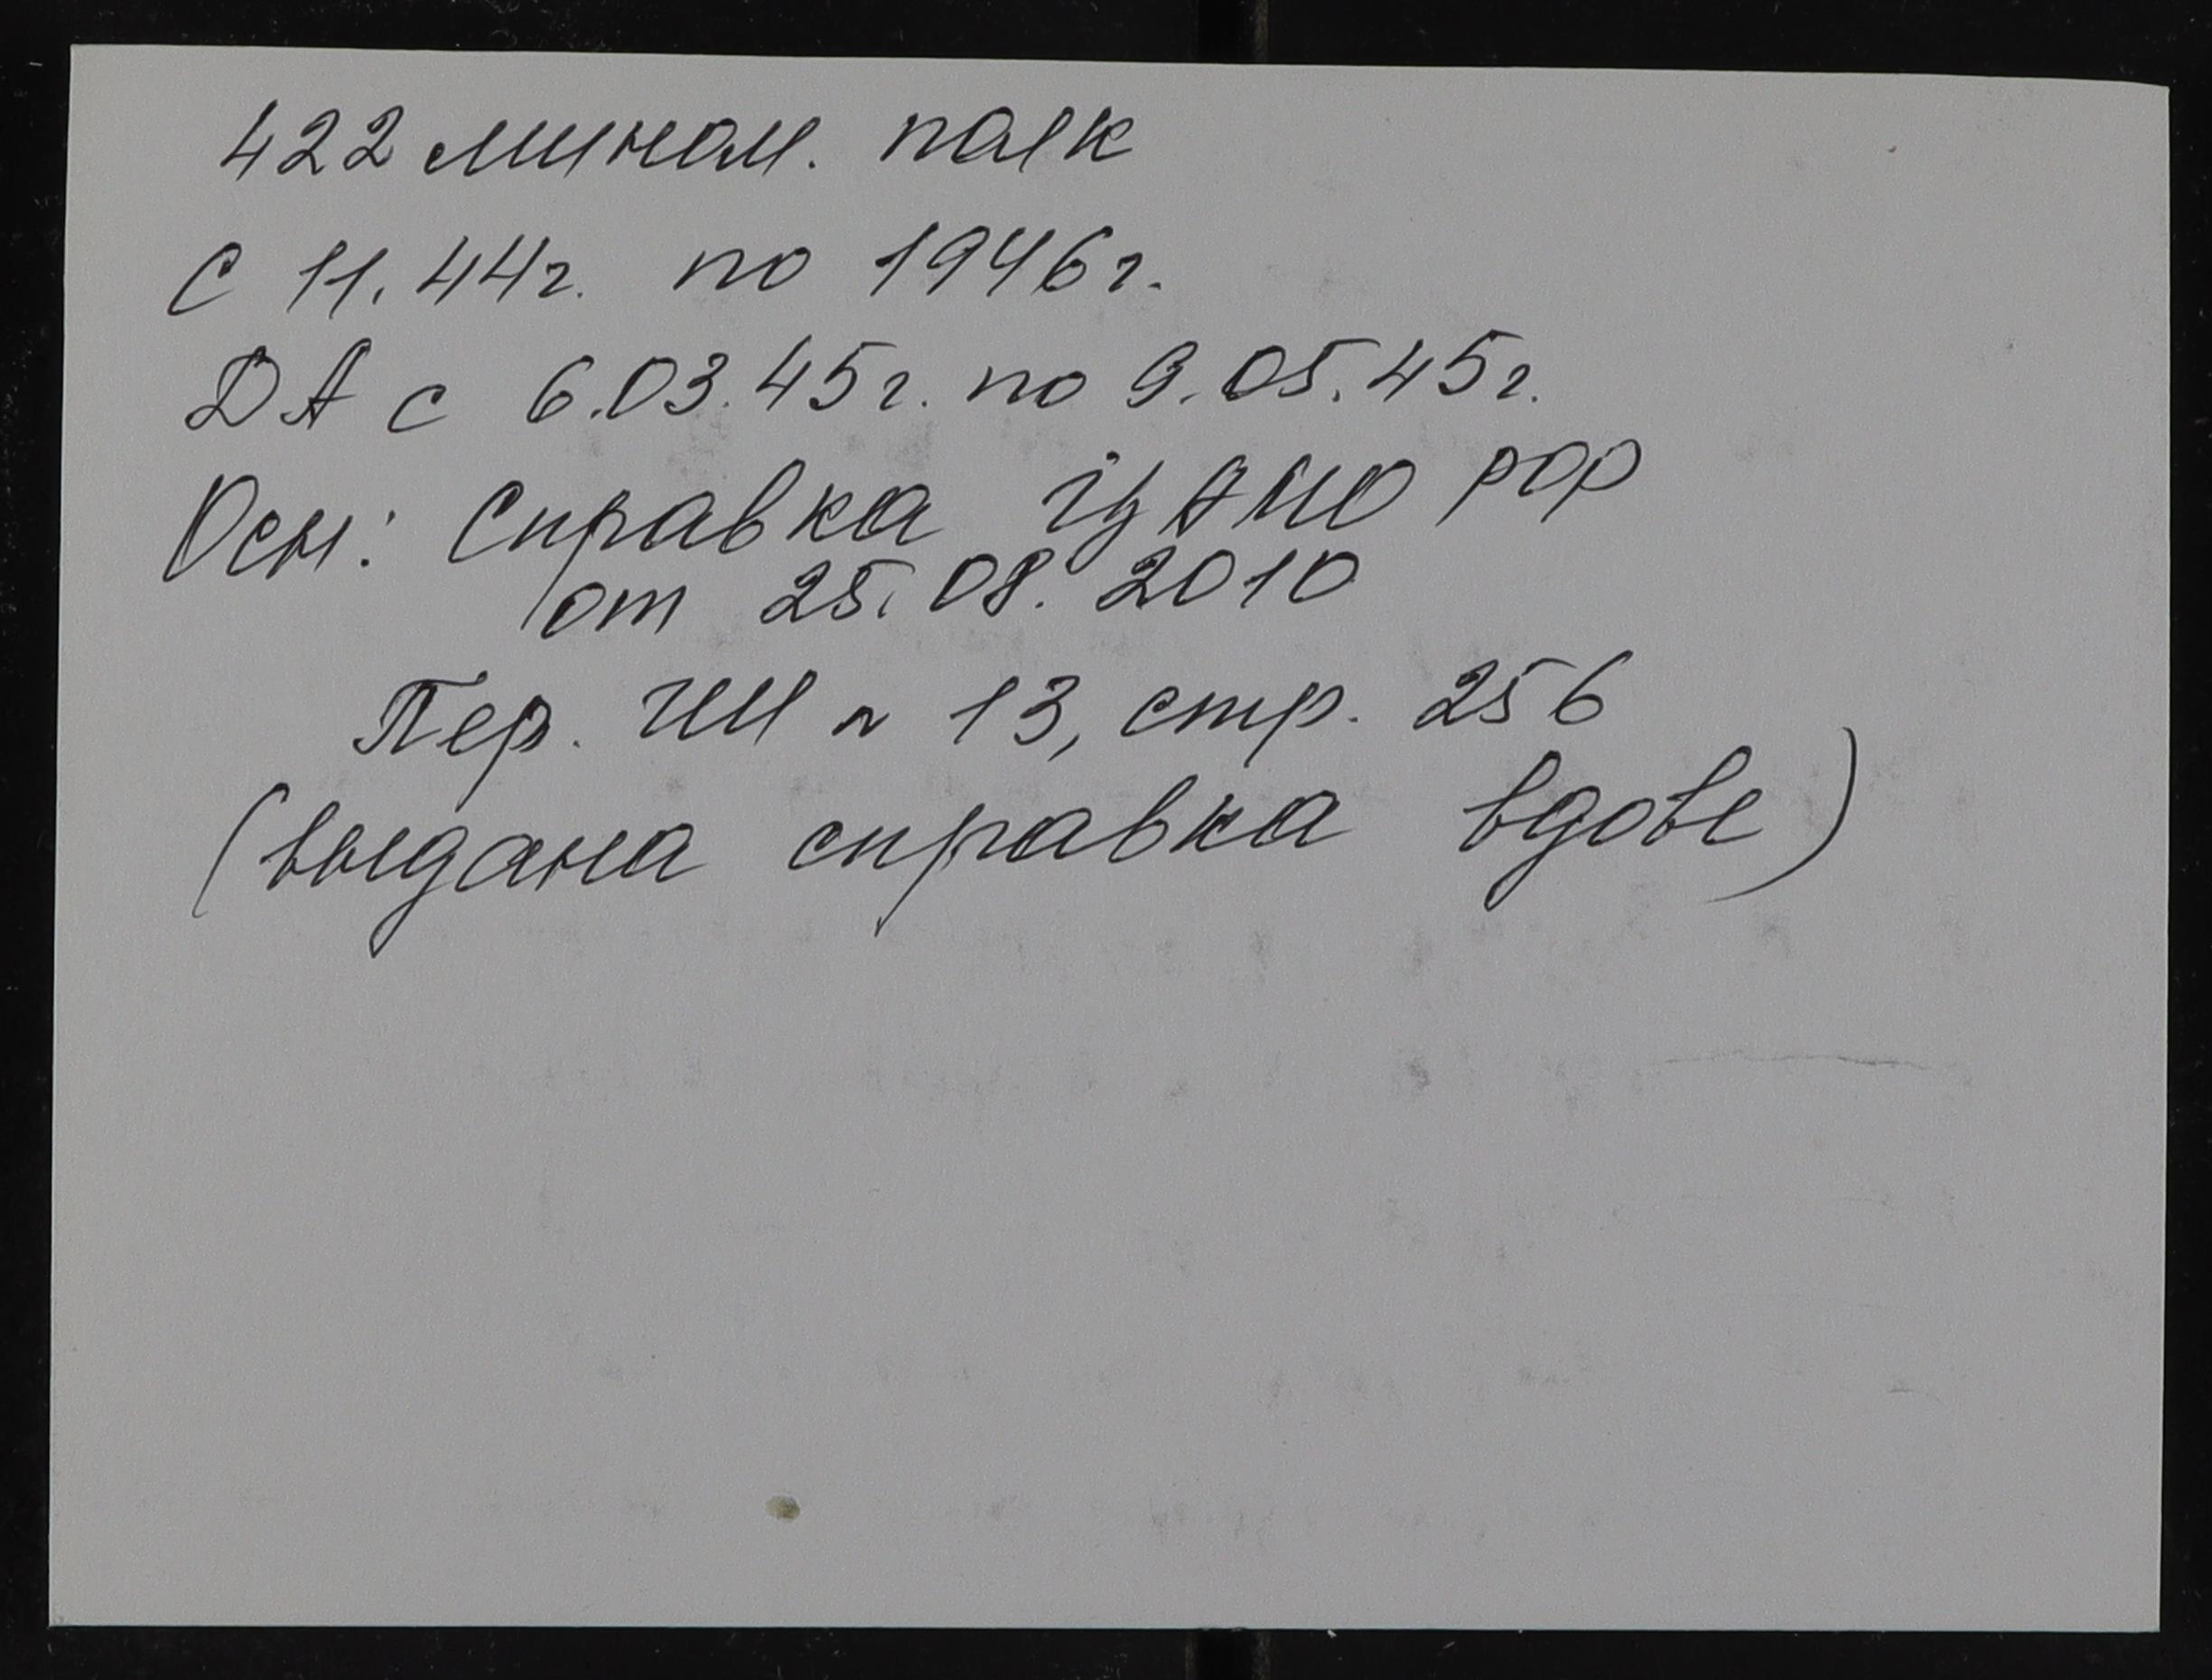 422 мином. полк
с 11.44г. по 1946г.
ДА с 6.03.45г. по 9.05.45г.
Осн: Справка ЦАМО РФ
от 25.08.2010
Пер. № 13, стр. 256
(выдана справка вдове)